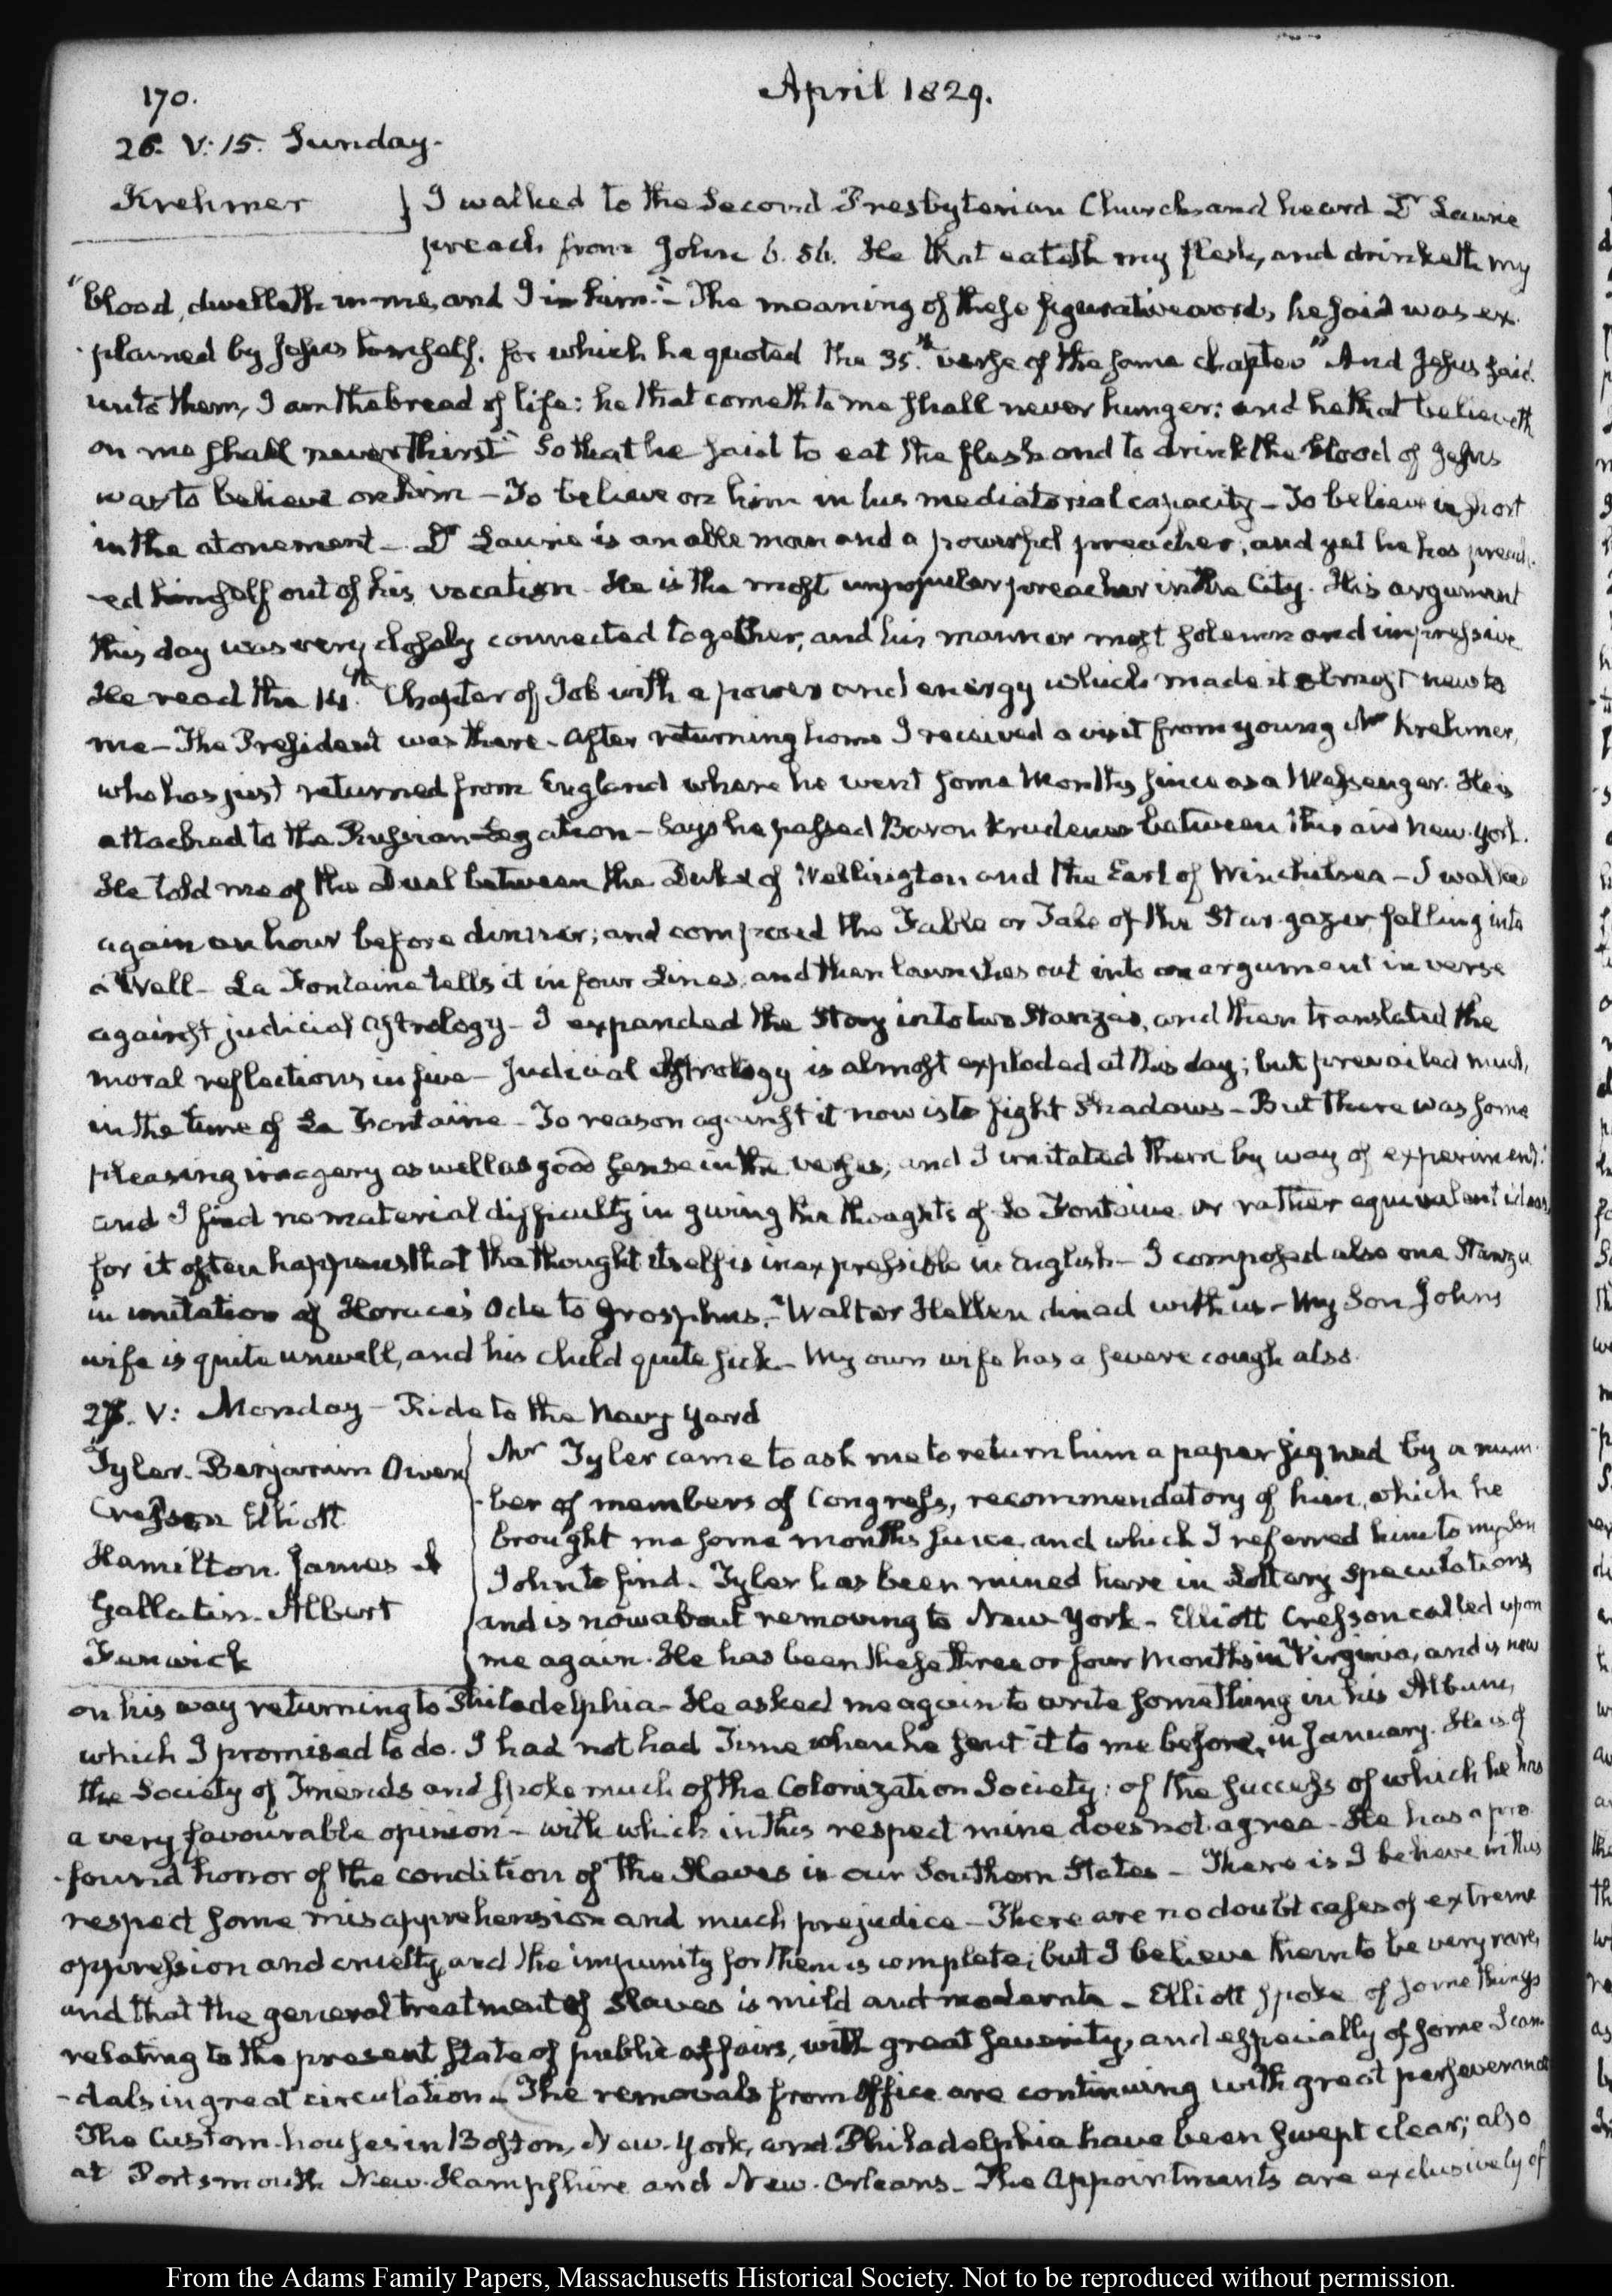 170.
April 1829.
26. V:15. Sunday.
Krehmer
I walked to the Second Presbyterian Church and heard Dr Laurie
preach from John 6. 56. He that eateth my flesh, and drinketh my
"blood, dwelleth in me, and I in him."- The meaning of these figurative words, he said was ex-
-plained by Jesus himself. for which he quoted the 35.th verse of the same chapter "And Jesus said
unto them, I am the bread of life: he that cometh to me shall never hunger: and he that believeth
on me shall never thirst" So that he said to eat the flesh and to drink the blood of Jesus
was to believe on him - To believe on him in his mediatorial capacity - To believe in short
in the atonement - Dr Laurie is an able man and a powerful preacher, and yet he has preach-
-ed himself out of his vocation. He is the most unpopular preacher in the City. His argument
this day was very closely connected together, and his manner most solemn and impressive
He read the 14.th Chapter of Job with a power and energy which made it almost new to
me - The President was there - After returning home I received a visit from young Mr Krehmer,
who has just returned from England where he went some Months since as a Messenger. He is
attached to the Russian Legation - Says he passed Baron Krudener between this and New-York.
He told me of the Duel between the Duke of Wellington and the Earl of Winchilsea - I walked
again an hour before dinner; and composed the Fable or Tale of the Star-gazer falling into
a Well - La Fontaine tells it in four Lines, and then launches out into an argument in verse
against judicial Astrology - I expanded the Story into two Stanzas, and then translated the
moral reflections in five - Judicial Astrology is almost exploded at this day; but prevailed much,
in the time of La Fontaine - To reason against it now is to fight Shadows - But there was some
pleasing imagery as well as good sense in the verses, and I imitated them by way of experiment:
and I find no material difficulty in giving the thoughts of La Fontaine or rather equivalent ideas,
for it often happens that the thought itself is inexpressible in English - I composed also one Stanza
in imitation of Horace's Ode to Grosphus. - Walter Hellen dined with us - My Son John's
wife is quite unwell, and his child quite sick - My own wife has a severe cough also.
27. V: Monday - Ride to the Navy Yard
Tyler. Benjamin Owen
Cresson Elliott
Hamilton. James A
Gallatin. Albert
Fenwick
Mr Tyler came to ask me to return him a paper signed by a num-
-ber of members of Congress, recommendatory of him, which he
brought me some months since, and which I referred him to my Son
John to find. Tyler has been ruined here in Lottery speculations
and is now about removing to New York - Elliott Cresson called upon
me again. He has been these three or four Months in Virginia, and is now
on his way returning to Philadelphia - He asked me again to write something in his Album,
which I promised to do. I had not had Time when he sent it to me before, in January. He is of
the Society of Friends and spoke much of the Colonization Society: of the success of which he has
a very favourable opinion - with which in this respect mine does not agree - He has a pro-
-found horror of the condition of the Slaves in our Southern States - There is I believe in this
respect some misapprehension and much prejudice - There are no doubt cases of extreme
oppression and cruelty, and the impunity for them is complete; but I believe them to be very rare,
and that the general treatment of Slaves is mild and moderate - Elliott spoke of some things
relating to the present state of public affairs, with great severity, and especially of some Scan-
-dals in great circulation - The removals from Office are continuing with great perseverance
The Custom-houses in Boston, New-York, and Philadelphia have been swept clear; also
at Portsmouth New-Hampshire and New-Orleans - The Appointments are exclusively of
From the Adams Family Papers, Massachusetts Historical Society. Not to be reproduced without permission.